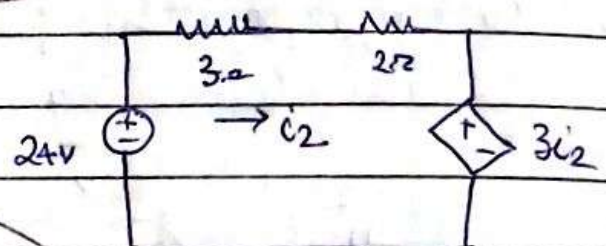 3Ω 2Ω
24V + - → i₂ + - 3i₂